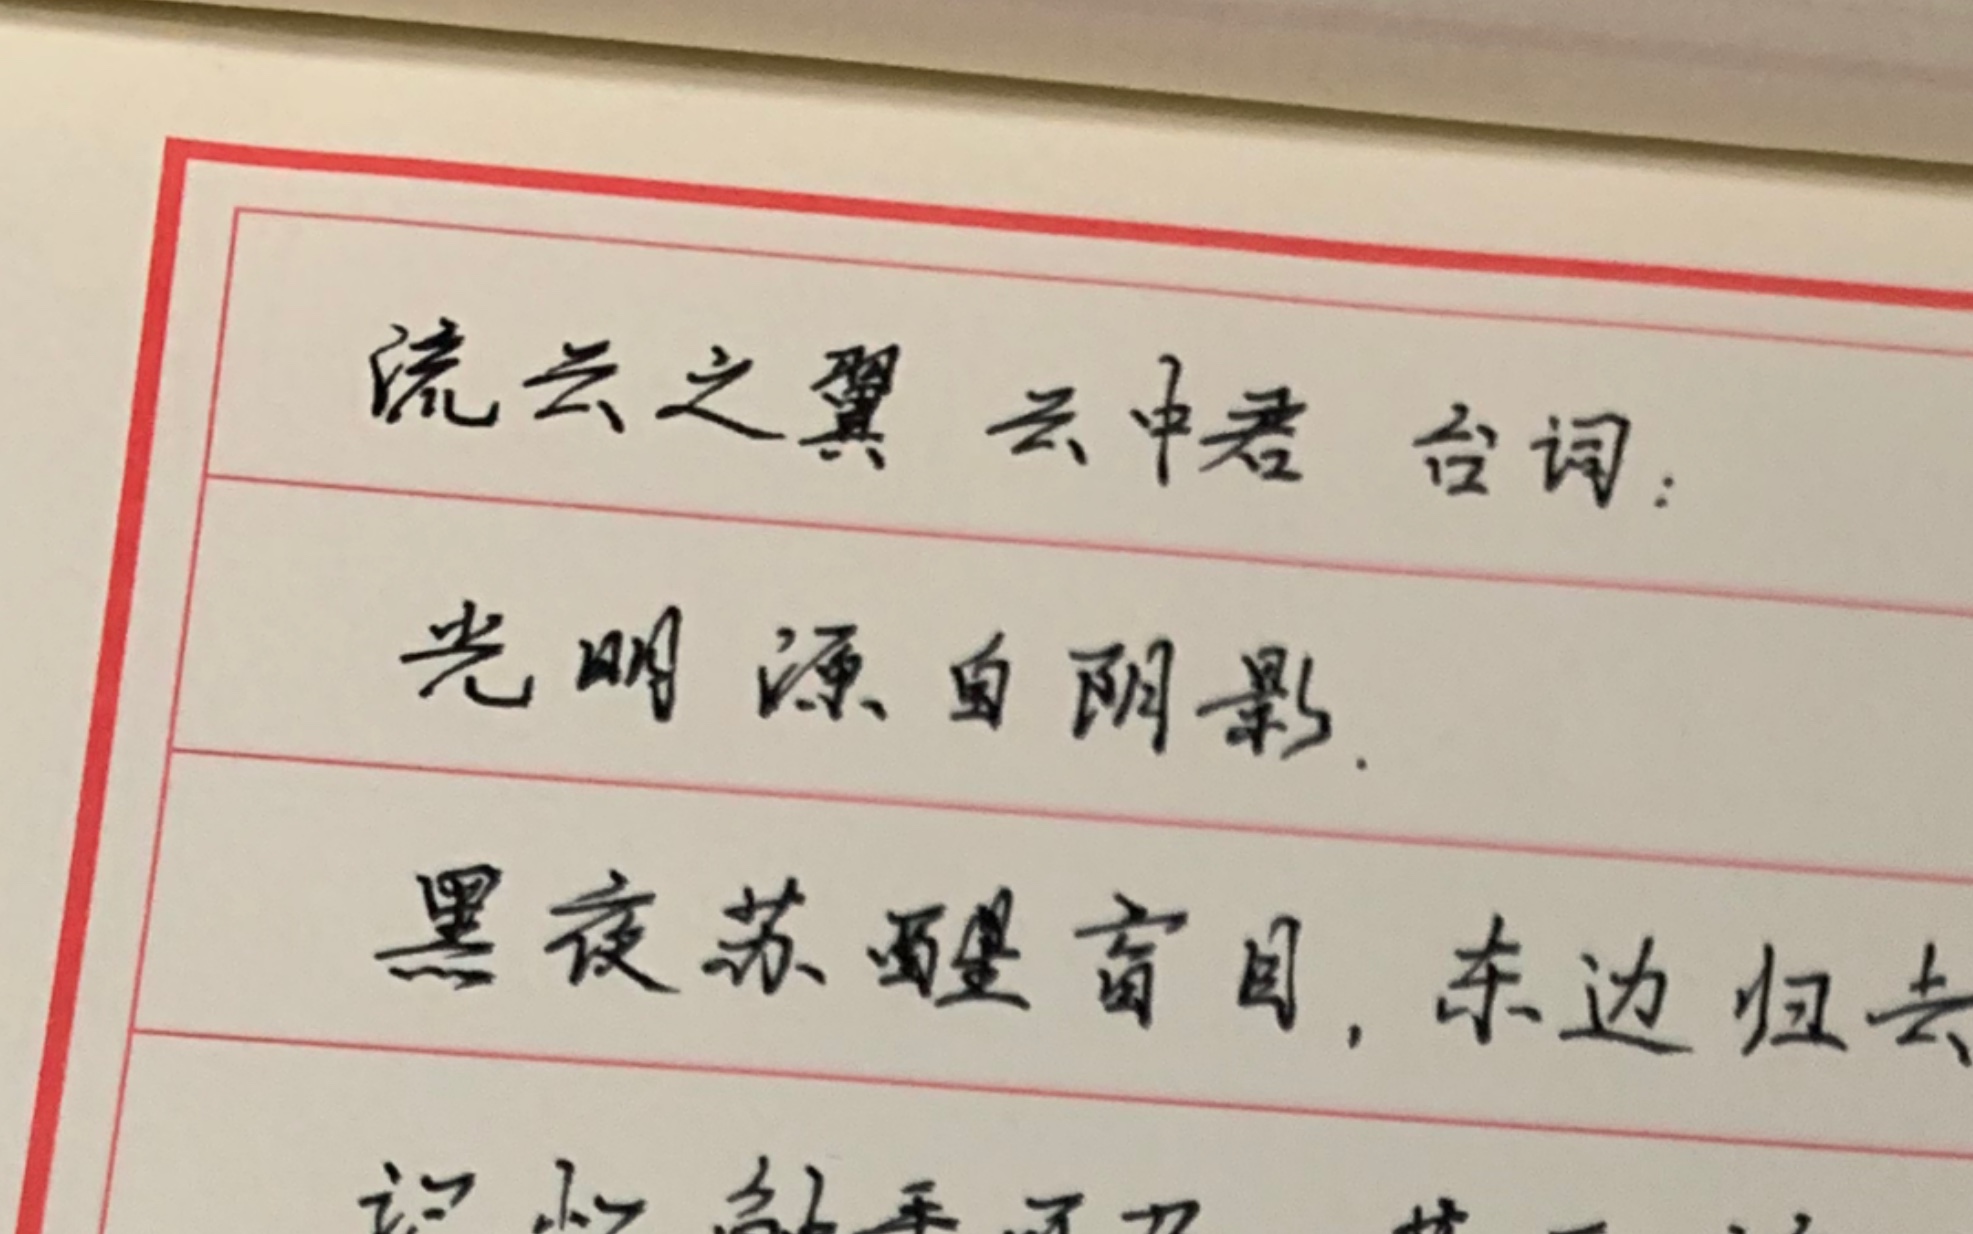 流云之翼 云中君 台词:
光明源自阴影.
黑夜苏醒盲目, 东边归去